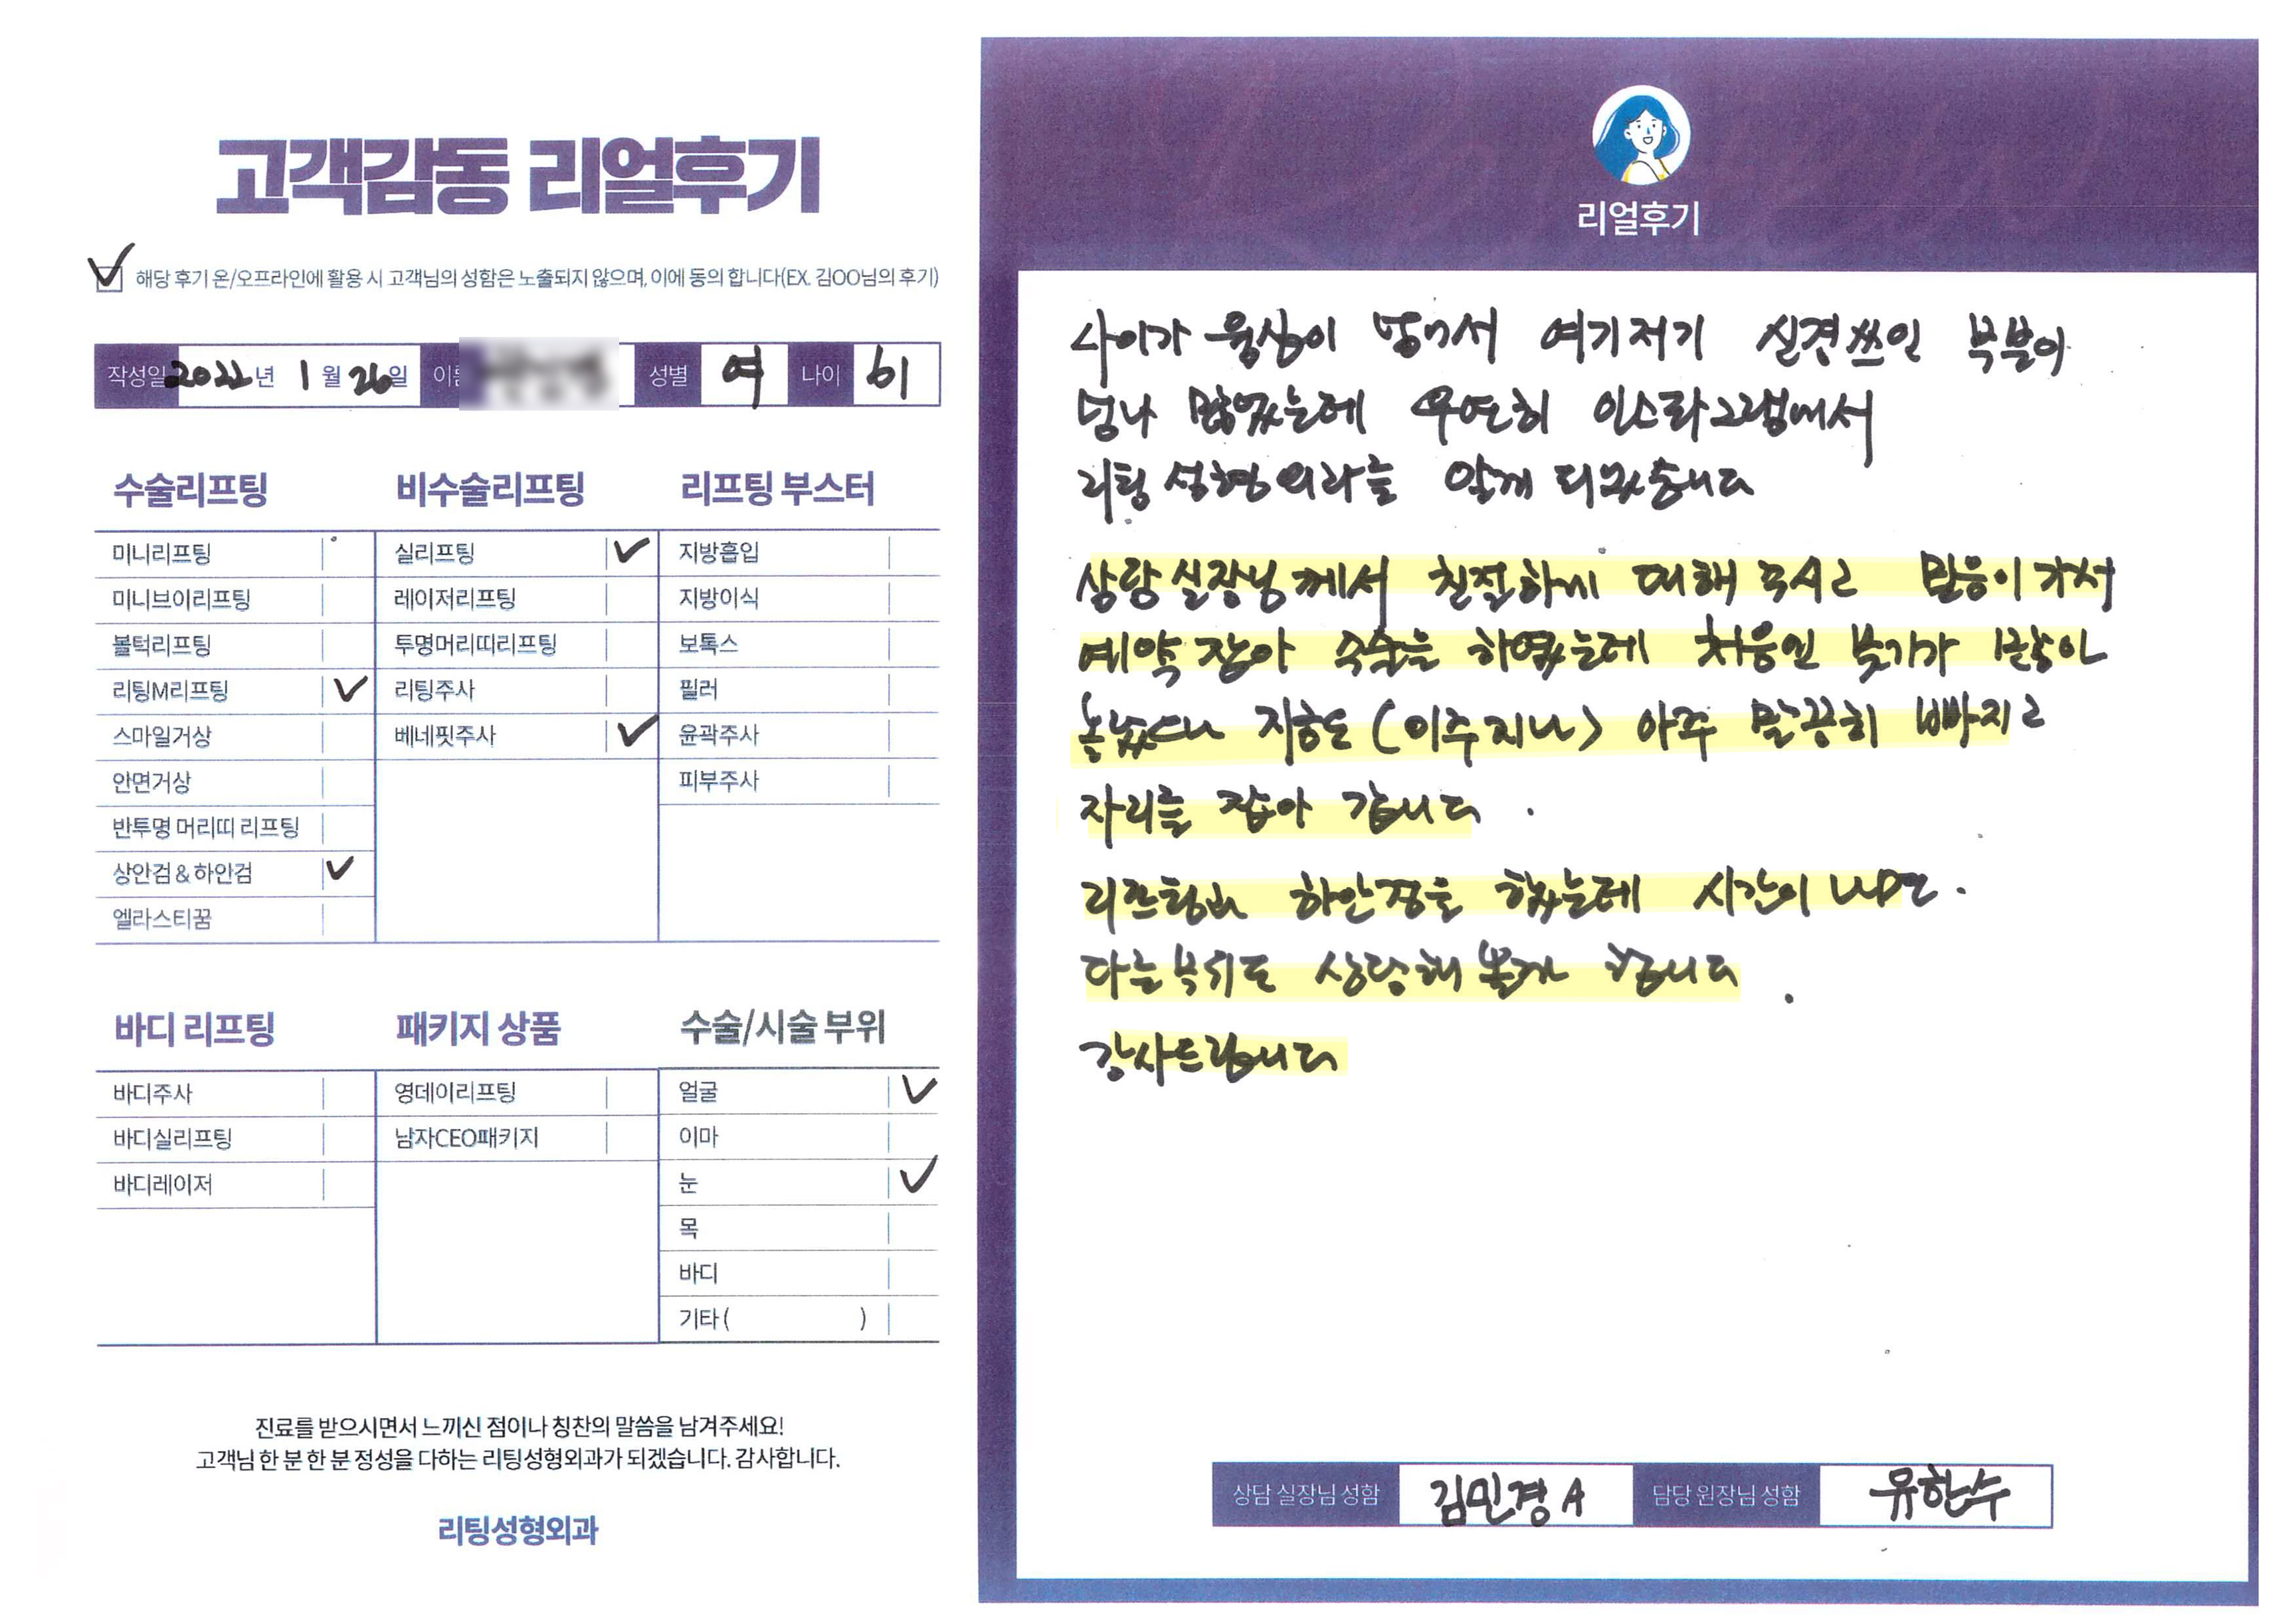 고객감동 리얼후기
해당 후기 온/오프라인에 활용 시 고객님의 성함은 노출되지 않으며, 이에 동의 합니다(EX. 김OO님의 후기)
작성일 2022년 1월 26일 성별 여 나이 61
수술리프팅
미니리프팅
미니브이리프팅
볼턱리프팅
리팅M리프팅
스마일거상
안면거상
반투명 머리띠 리프팅
상안검 & 하안검
엘라스티꿈
비수술리프팅
실리프팅
레이저리프팅
투명머리띠리프팅
리팅주사
베네핏주사
리프팅 부스터
지방흡입
지방이식
보톡스
필러
윤곽주사
피부주사
바디 리프팅
바디주사
바디실리프팅
바디레이저
패키지 상품
영데이리프팅
남자CEO패키지
수술/시술 부위
얼굴
이마
눈
목
바디
기타 ( )
진료를 받으시면서 느끼신 점이나 칭찬의 말씀을 남겨주세요!
고객님 한 분 한 분 정성을 다하는 리팅성형외과가 되겠습니다. 감사합니다.
리팅성형외과
리얼후기
여기저기 신경쓰인 부분이
넘나 많았는데 우연히 인스타그램에서
리팅 성형외과를 알게 되었습니다
상담 실장님께서 친절하게 대해 주시고 믿음이 가서
예약 잡아 수술을 하였는데 처음엔 붓기가 많아
놀랐으나 지금은 (이주지나) 아주 말끔히 빠지고
자리를 잡아 갑니다.
리프팅과 하안검을 했는데 시간이 나면.
다른부위도 상담해 볼까 합니다.
감사드립니다
상담 실장님 성함 김민경 A 담당 원장님 성함 유한수